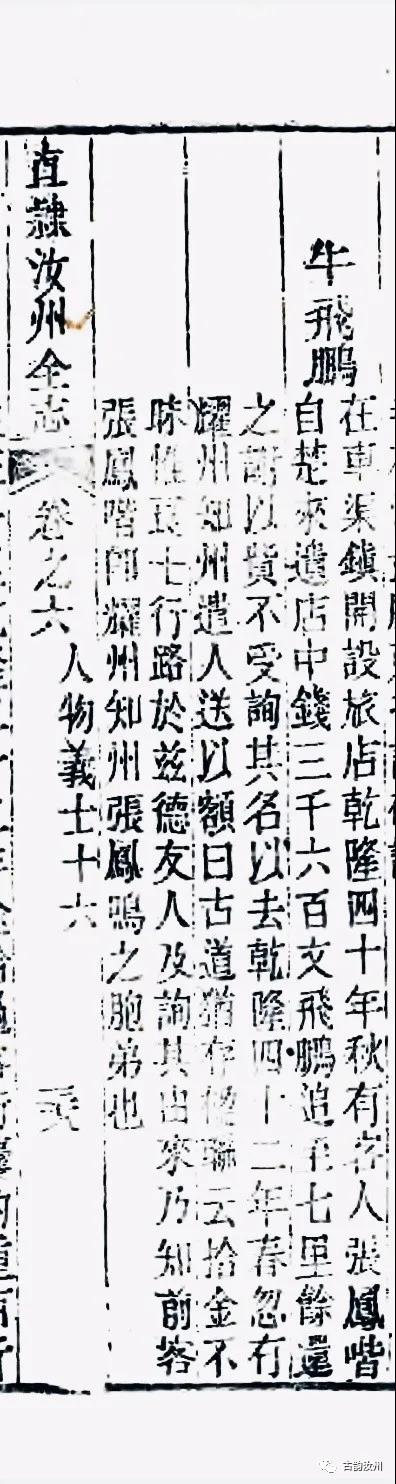 牛飛鵬
在車渠鎮開設旅店乾隆四十年秋有客人張鳳喈
自楚來遺店中錢三千六百文飛鵬追至七里餘還
之謝以貲不受詢其名以去乾隆四十二年春忽有
耀州知州遣人送以額曰古道猶存楹聯云拾金不
昧性真士行路於茲德友人及詢其由來乃知前客
張鳳喈即耀州知州張鳳鳴之胞弟也
直隸汝州全志 卷之六 人物義士十六
古韵汝州